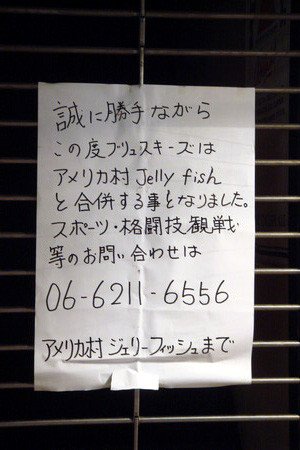 誠に勝手ながら
この度ブリュスキーズは
アメリカ村 Jelly fish
と合併する事となりました。
スポーツ・格闘技観戦
等のお問い合わせは
06-6211-6556
アメリカ村 ジェリーフィッシュまで